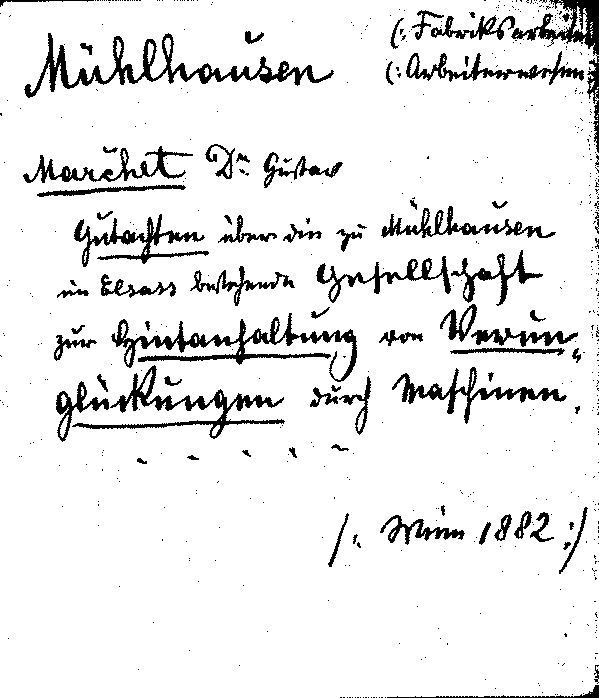 Mühlhausen
(: Fabriksarbeiter
(: Arbeiterwesen :)
Marchet Dr. Gustav
Gutachten über die zu Mühlhausen
im Elsass bestehende Gesellschaft
zur Hintanhaltung von Verun=
glückungen durch Maschinen.
/: Wien 1882 :/